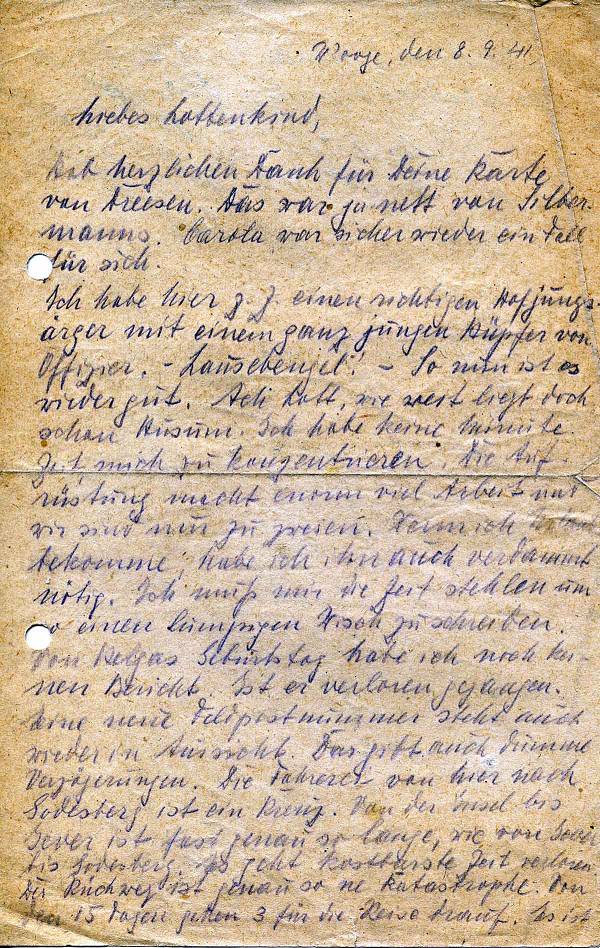 Wooge, den 8.9.41
Liebes Lottenkind,
Hab herzlichen Dank für Deine Karte
von Dreesen. Das war ja nett von Silber-
manns. Carola war sicher wieder ein Fall
für sich.
Ich habe hier z. Z. einen richtigen
ärger mit einem ganz jungen Hüpfer von
Offizier. - Lausebengel! - So nun ist es
wieder gut. Ach Lott, wie weit liegt doch
schon Husum. Ich habe keine Minute
Zeit, mich zu konzentrieren. Die Auf-
rüstung macht enorm viel Arbeit und
wir sind nur zu zweien. Wenn ich Urlaub
bekomme, habe ich ihn auch verdammt
nötig. Ich muß mir die Zeit stehlen um
so einen lumpigen Wisch zu schreiben.
Von Helgas Geburtstag habe ich noch kei-
nen Bericht. Ist er verloren gegangen.
Eine neue Feldpostnummer steht auch
wieder in Aussicht. Das gibt auch dumme
Verzögerungen. Die Fahrerei von hier nach
Godesberg ist ein Kreuz. Von der Insel bis
Jever ist fast genau so lange, wie von Jever
bis Godesberg. Es geht kostbarste Zeit verloren
Der Rückweg ist genau so ne Katastrophe. Von
den 15 Tagen gehen 3 für die Reise drauf. Es ist